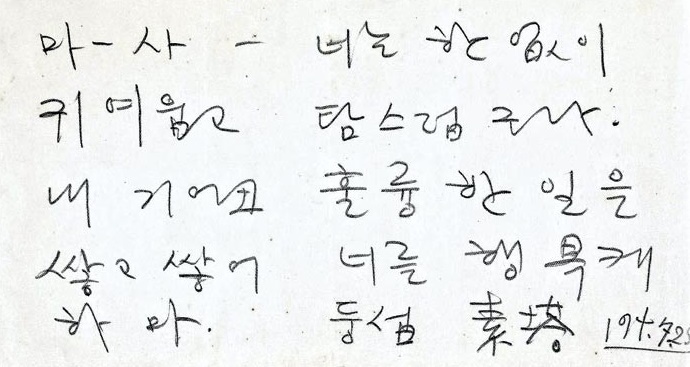 마ー사ー 너는 한 없이
귀여웁고 탐스럽구나.
내 기어코 훌륭한 일을
쌓고 쌓어 너를 행복케
하마. 둥섭 素塔